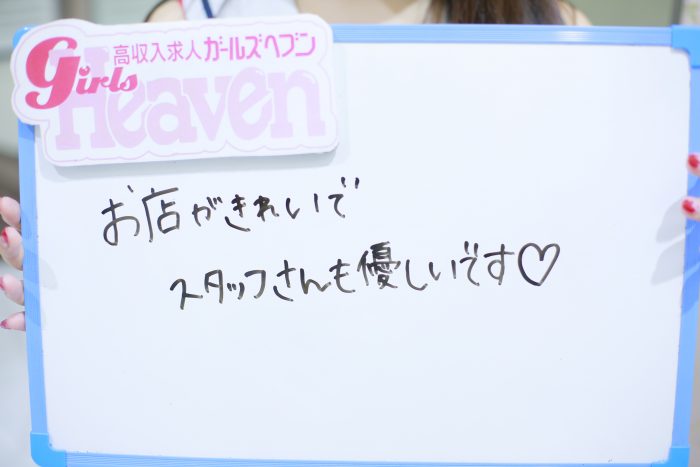 高収入求人ガールズヘブン
Girls
Heaven
お店がきれいで
スタッフさんも優しいです♡